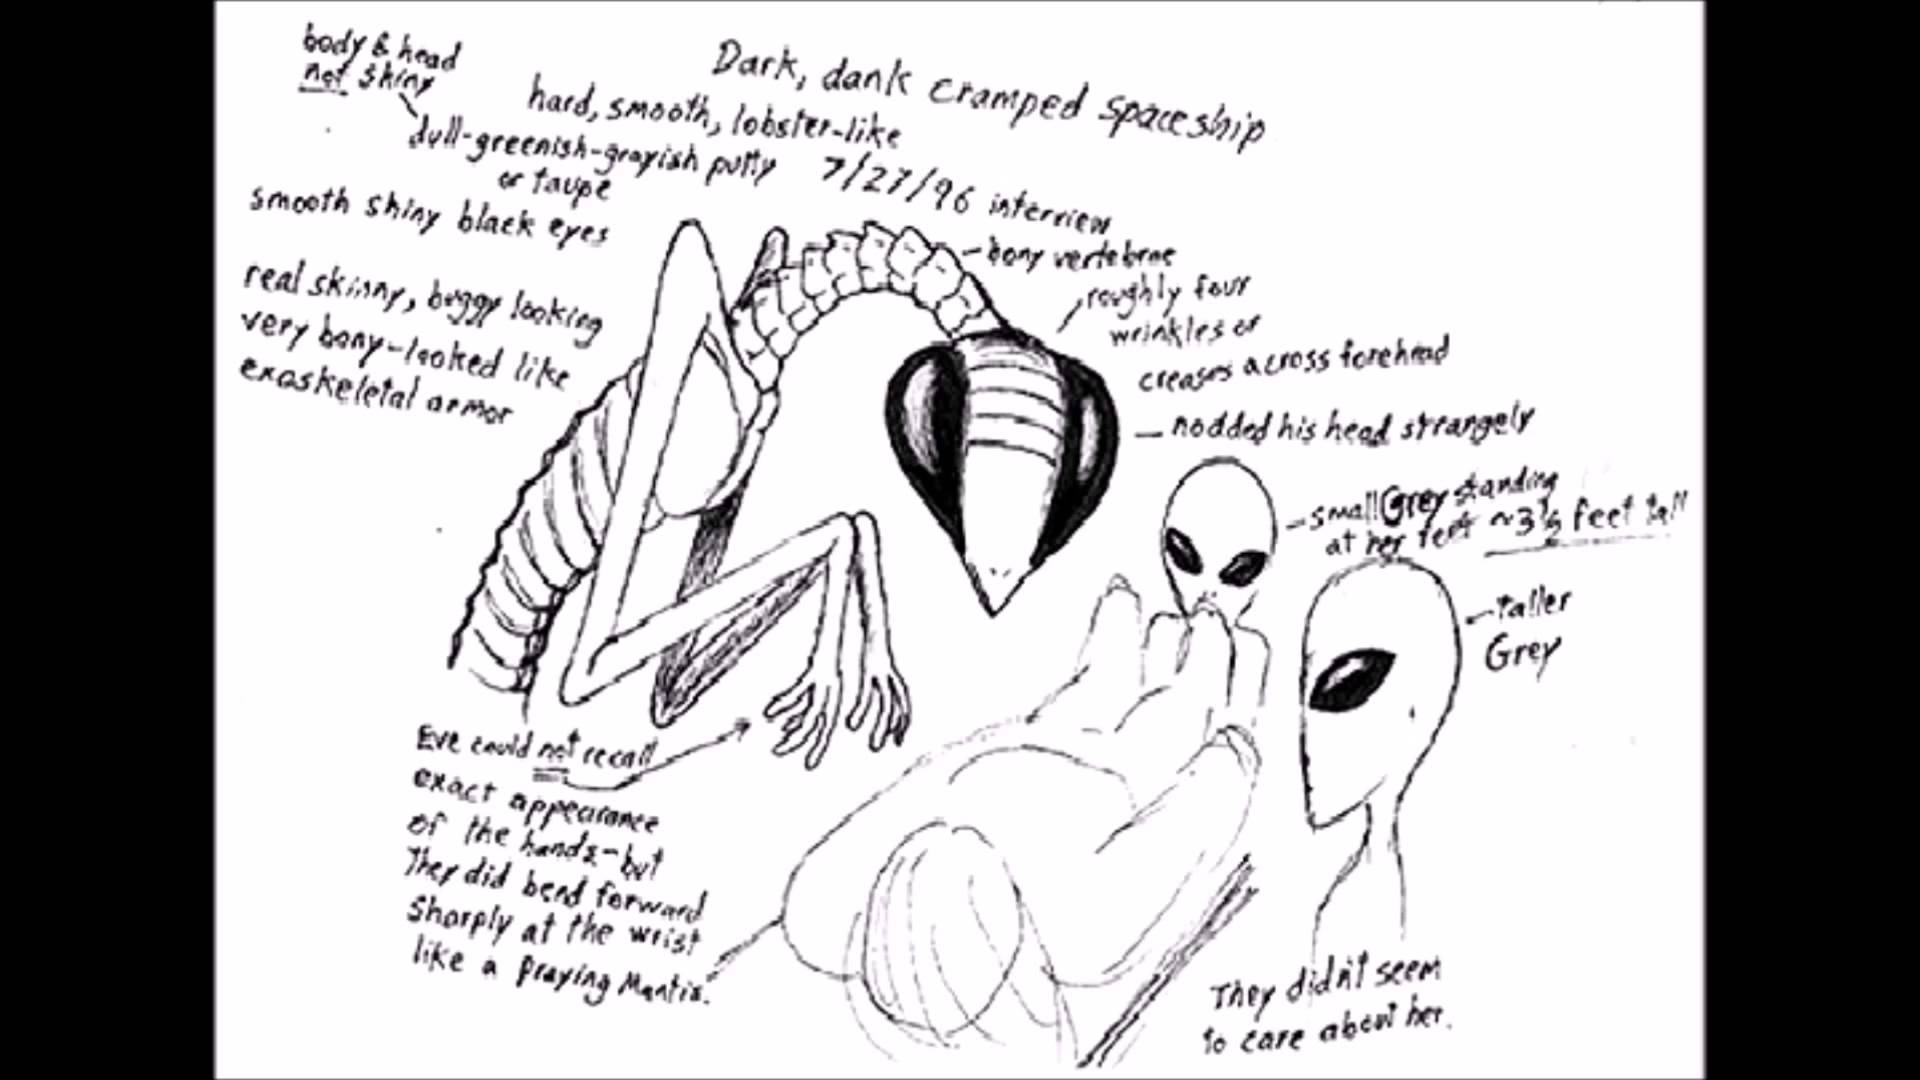 body & head
not shiny
Dark, dank cramped spaceship
hard, smooth, lobster-like
dull-greenish-grayish putty
or taupe
7/27/96 interview
smooth shiny black eyes
bony vertebrae
real skinny, buggy looking
very bony-looked like
exoskeletal armor
roughly four
wrinkles or
creases across forehead
nodded his head strangely
small Grey standing
at her feet ~3½ feet tall
taller
Grey
Eve could not recall
exact appearance
of the hands-but
They did bend forward
sharply at the wrist
like a praying Mantis.
They didn't seem
to care about her.